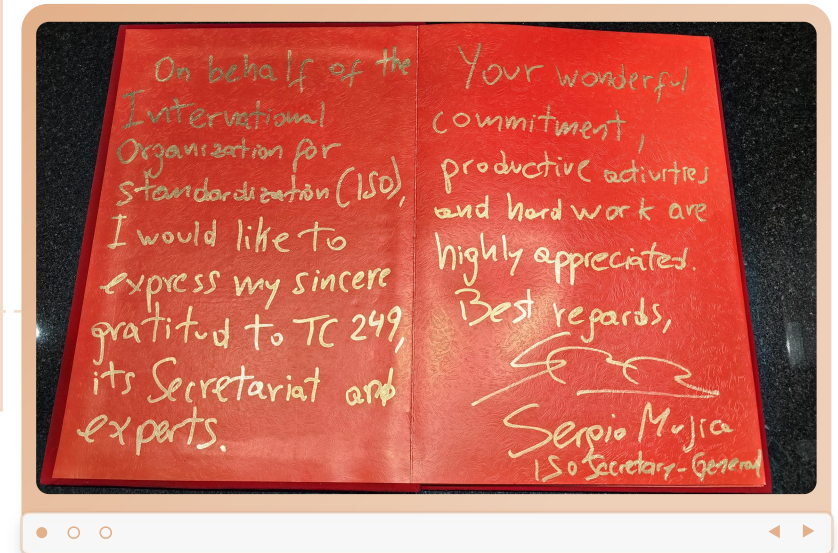 On behalf of the
International
Organization for
Standardization (ISO),
I would like to
express my sincere
gratitud to TC 249,
its Secretariat and
experts.
Your wonderful
commitment,
productive activities
and hard work are
highly appreciated.
Best regards,
Sergio Mujica
ISO Secretary-General